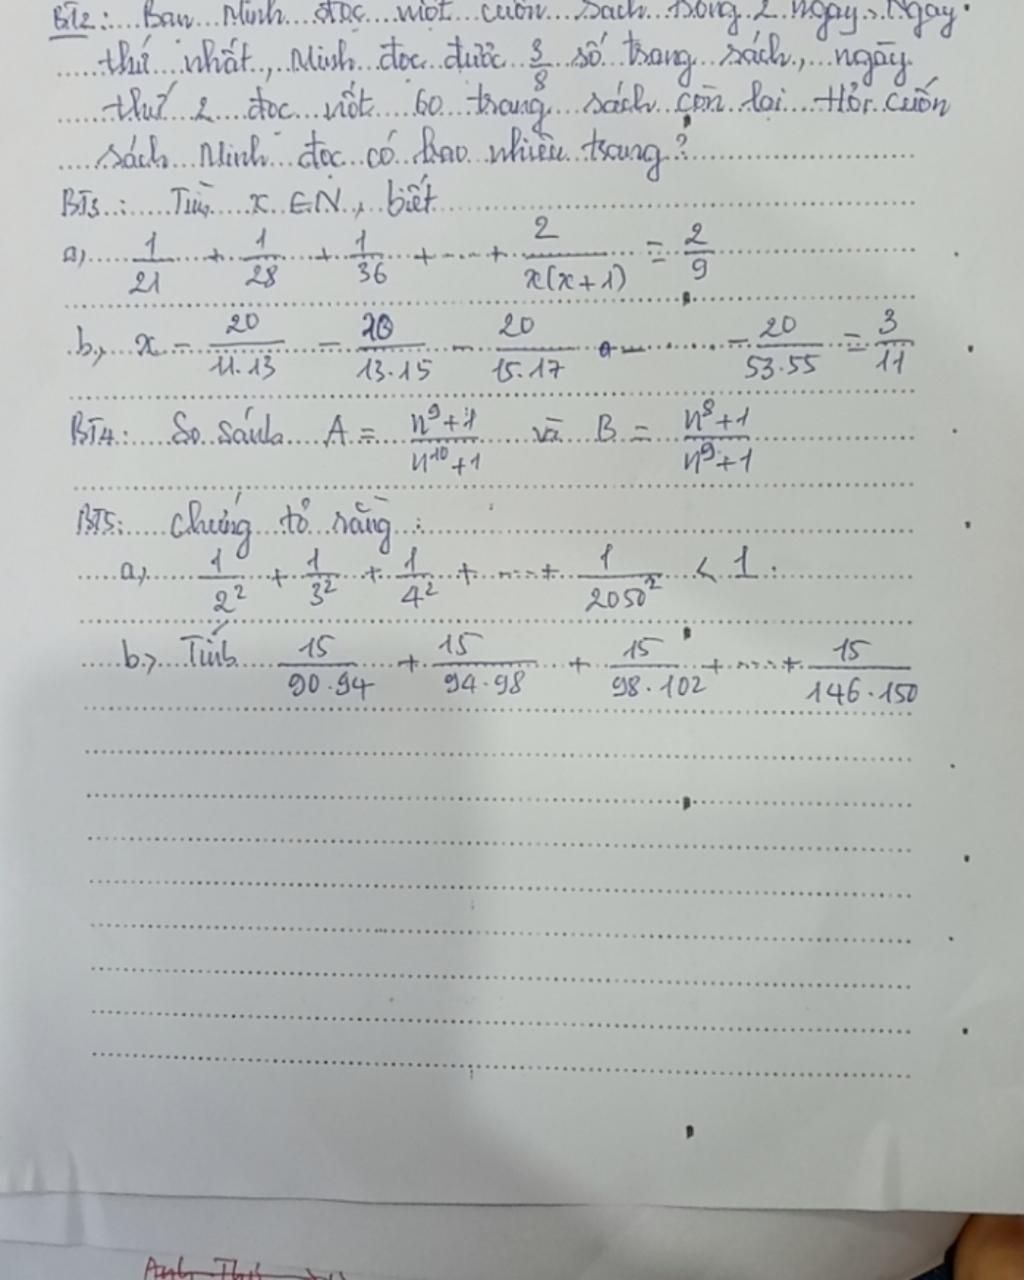 BT2: Bạn Minh đọc một cuốn sách trong 2 ngày. Ngày
thứ nhất, Minh đọc được 3/8 số trang sách, ngày
thứ 2 đọc nốt 60 trang sách còn lại. Hỏi cuốn
sách Minh đọc có bao nhiêu trang?
BT3: Tìm x ∈ N, biết
a, 1/21 + 1/28 + 1/36 + ... + 2/x(x+1) = 2/9
b, x - 20/11.13 - 20/13.15 - 20/15.17 - ... - 20/53.55 = 3/11
BT4: So sánh A = n⁹+1/n¹⁰+1 và B = n⁸+1/n⁹+1
BT5: Chứng tỏ rằng:
a, 1/2² + 1/3² + 1/4² + ... + 1/2050² < 1.
b, Tính 15/90.94 + 15/94.98 + 15/98.102 + ... + 15/146.150